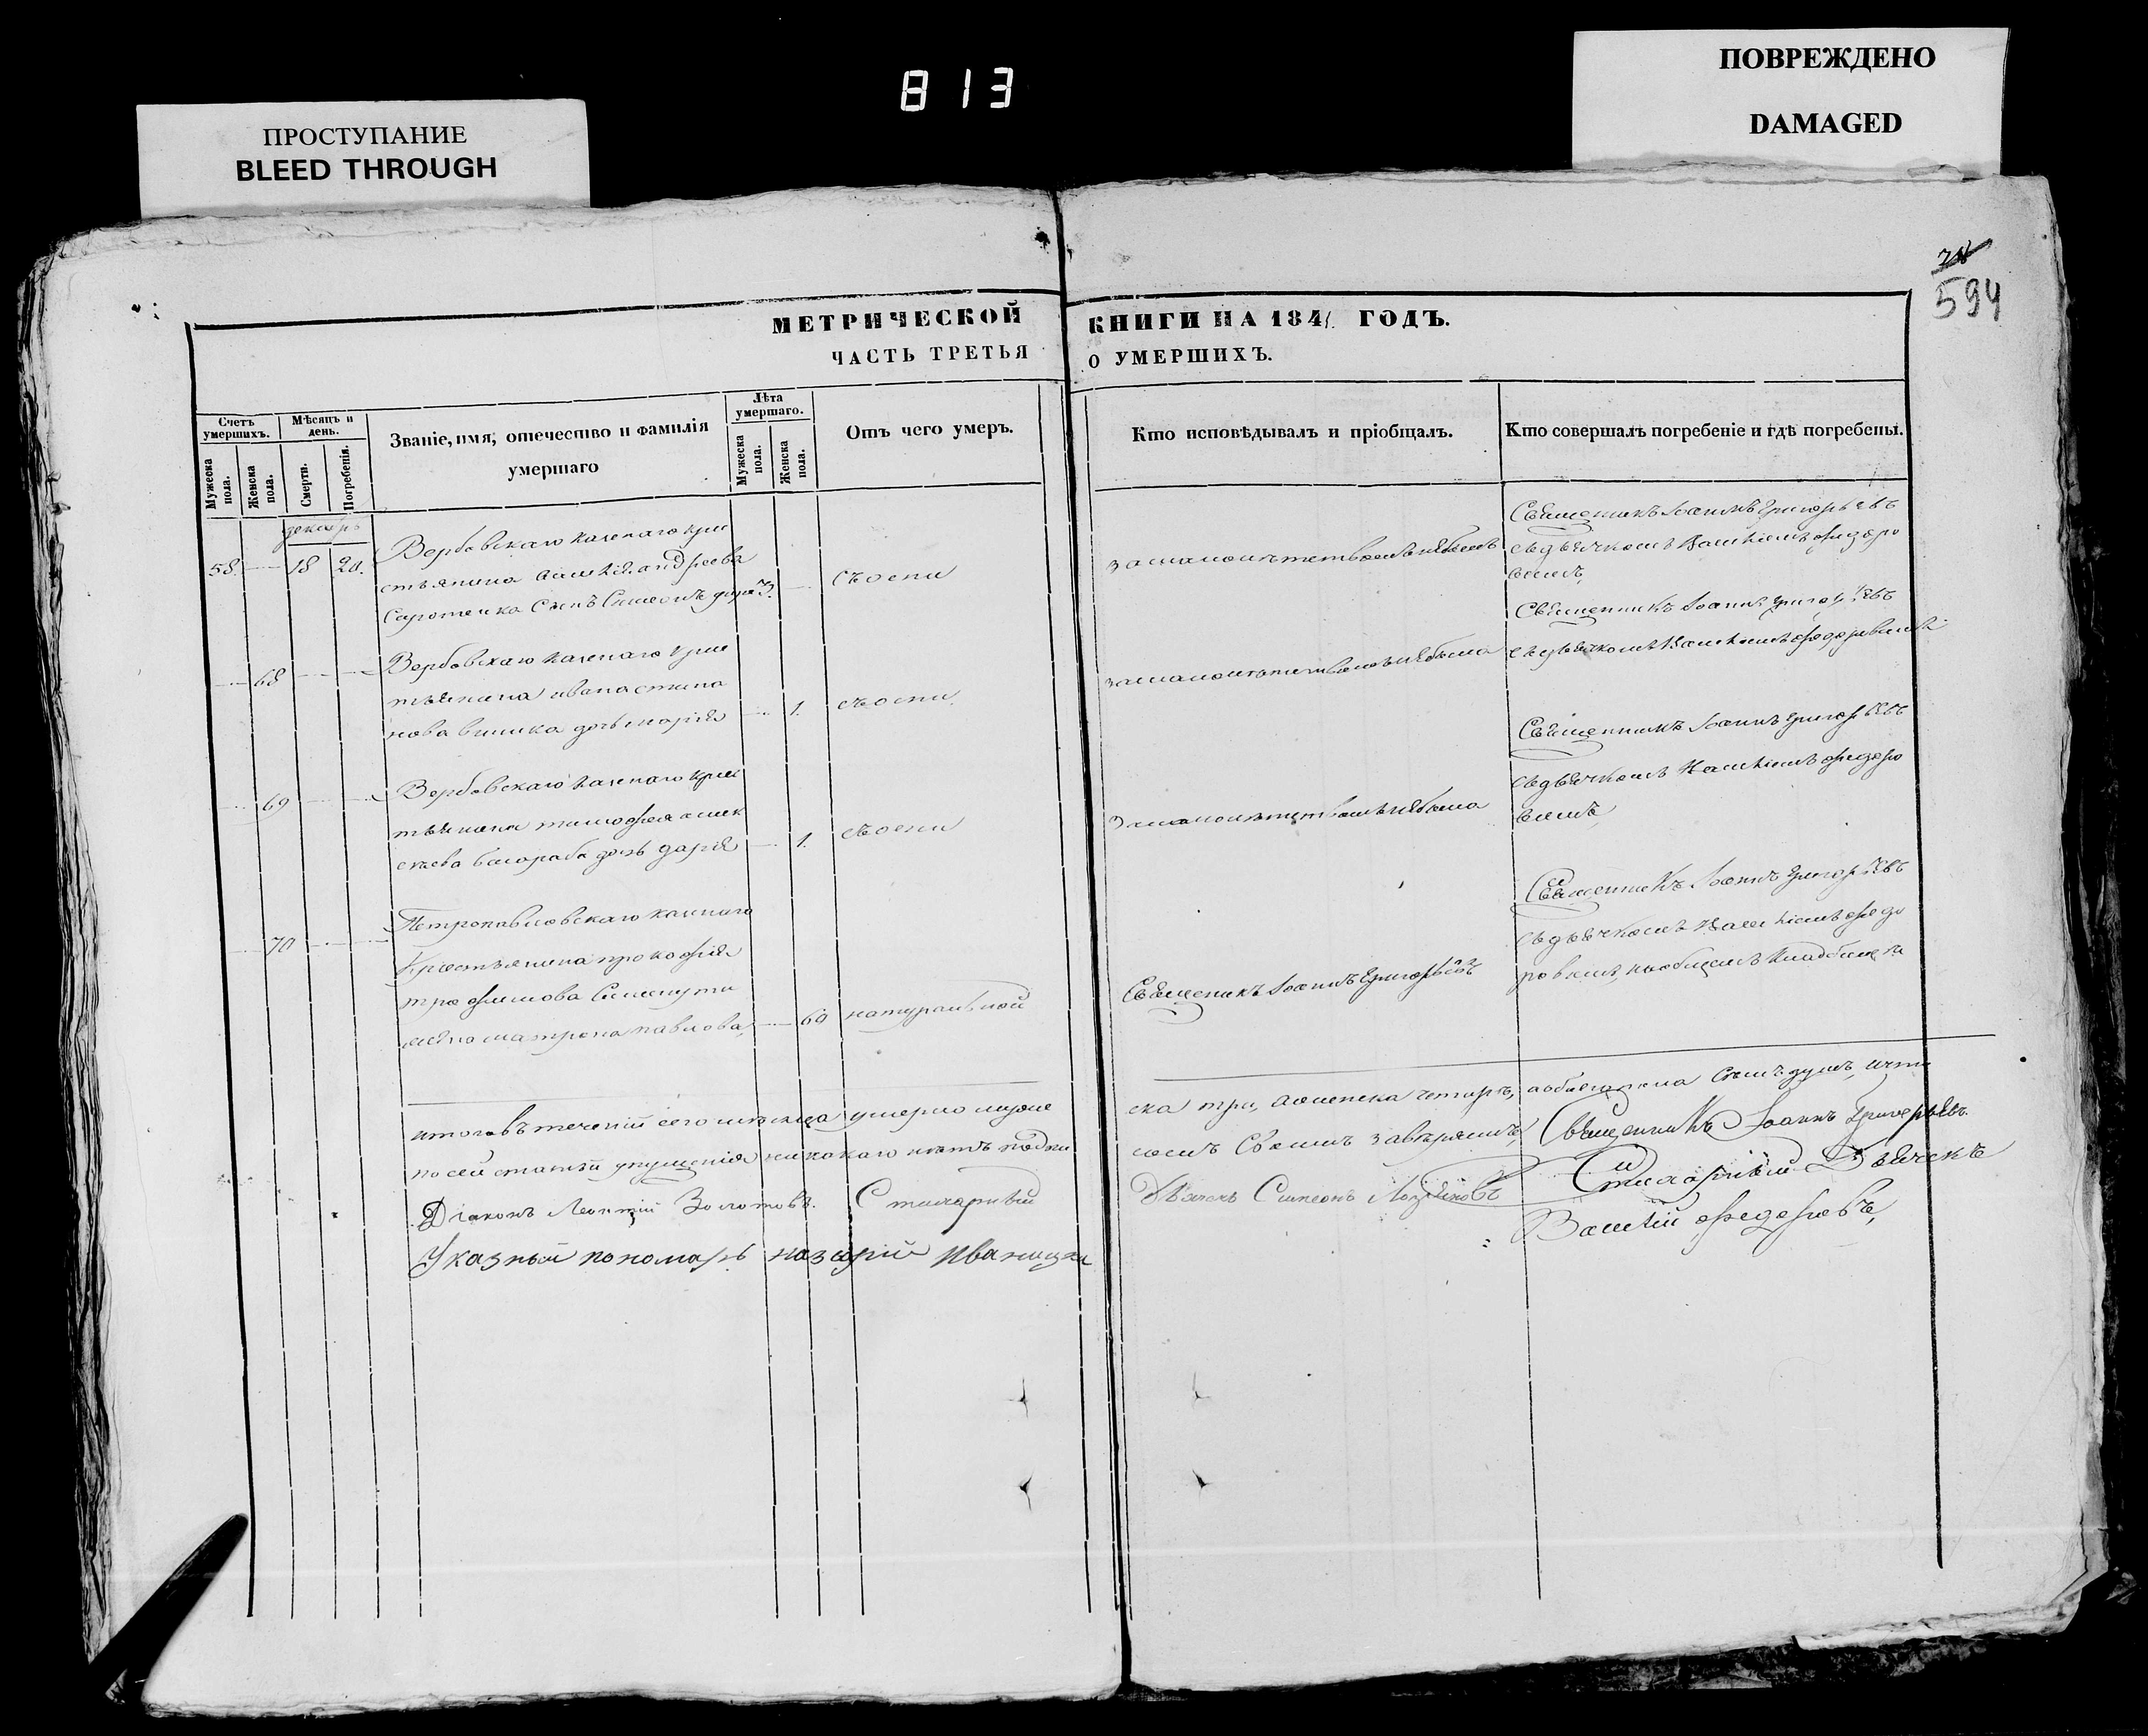 813
ПРОСТУПАНИЕ
BLEED THROUGH
ПОВРЕЖДЕНО
DAMAGED
594
МЕТРИЧЕСКОЙ КНИГИ НА 184 ГОДЪ.
ЧАСТЬ ТРЕТЬЯ О УМЕРШИХЪ.
Счетъ умершихъ.
Мужеска пола.
Женска пола.
Мѣсяцъ и день.
Смерти.
Погребенія.
Званіе, имя, отечество и фамилія умершаго
Лѣта умершаго.
Мужеска пола.
Женска пола.
Отъ чего умеръ.
Кто исповѣдывалъ и пріобщалъ.
Кто совершалъ погребеніе и гдѣ погребены.
декабрь
58. 18 20.
Вербовскаго казенаго крес
тьянина андреева
сынъ Симеонъ 3.
съ оспи
за малолетствомъ небылъ
Священикъ Іоаннъ Григорьевъ
съ дьячкомъ Василіемъ федоро
вимъ,
68
Вербовскаго казенаго крес
тьянина ивана
дочь марія 1.
съ оспи
за малолетствомъ небыла
Священникъ Іоаннъ Григорьевъ
съ дьячкомъ Василіемъ федоровимъ
69
Вербовскаго казенаго крес
тьянина тимофея алек
сѣева дочь дарія 1.
съ оспи
За малолетствомъ небыла
Священникъ Іоаннъ Григорьевъ
съ дьячкомъ Василіемъ федоро
вимъ,
70
Петропавловскаго казенаго
Крестьянина прокофія
трофимова
жена матрона павлова, 60
натуральной
Священикъ Іоаннъ Григорьевъ
Священникъ Іоаннъ Григорьевъ
съ дьячкомъ Василіемъ федо
ровимъ, на общемъ кладбище
итого въ теченіи сего месяца умерло муже
ска три, а женска четыре, а обоего пола семь душъ, и что
по сей статьи упущенія никакаго нетъ подпи
сомъ Своимъ завѣряемъ, Священникъ Іоаннъ Григорьевъ.
Діаконъ Леонтій Золотовъ. Стихарный
Дьячекъ Симеонъ
Стихарный Дьячекъ
Василій федоровъ,
Указный пономарь назарій Иваницки